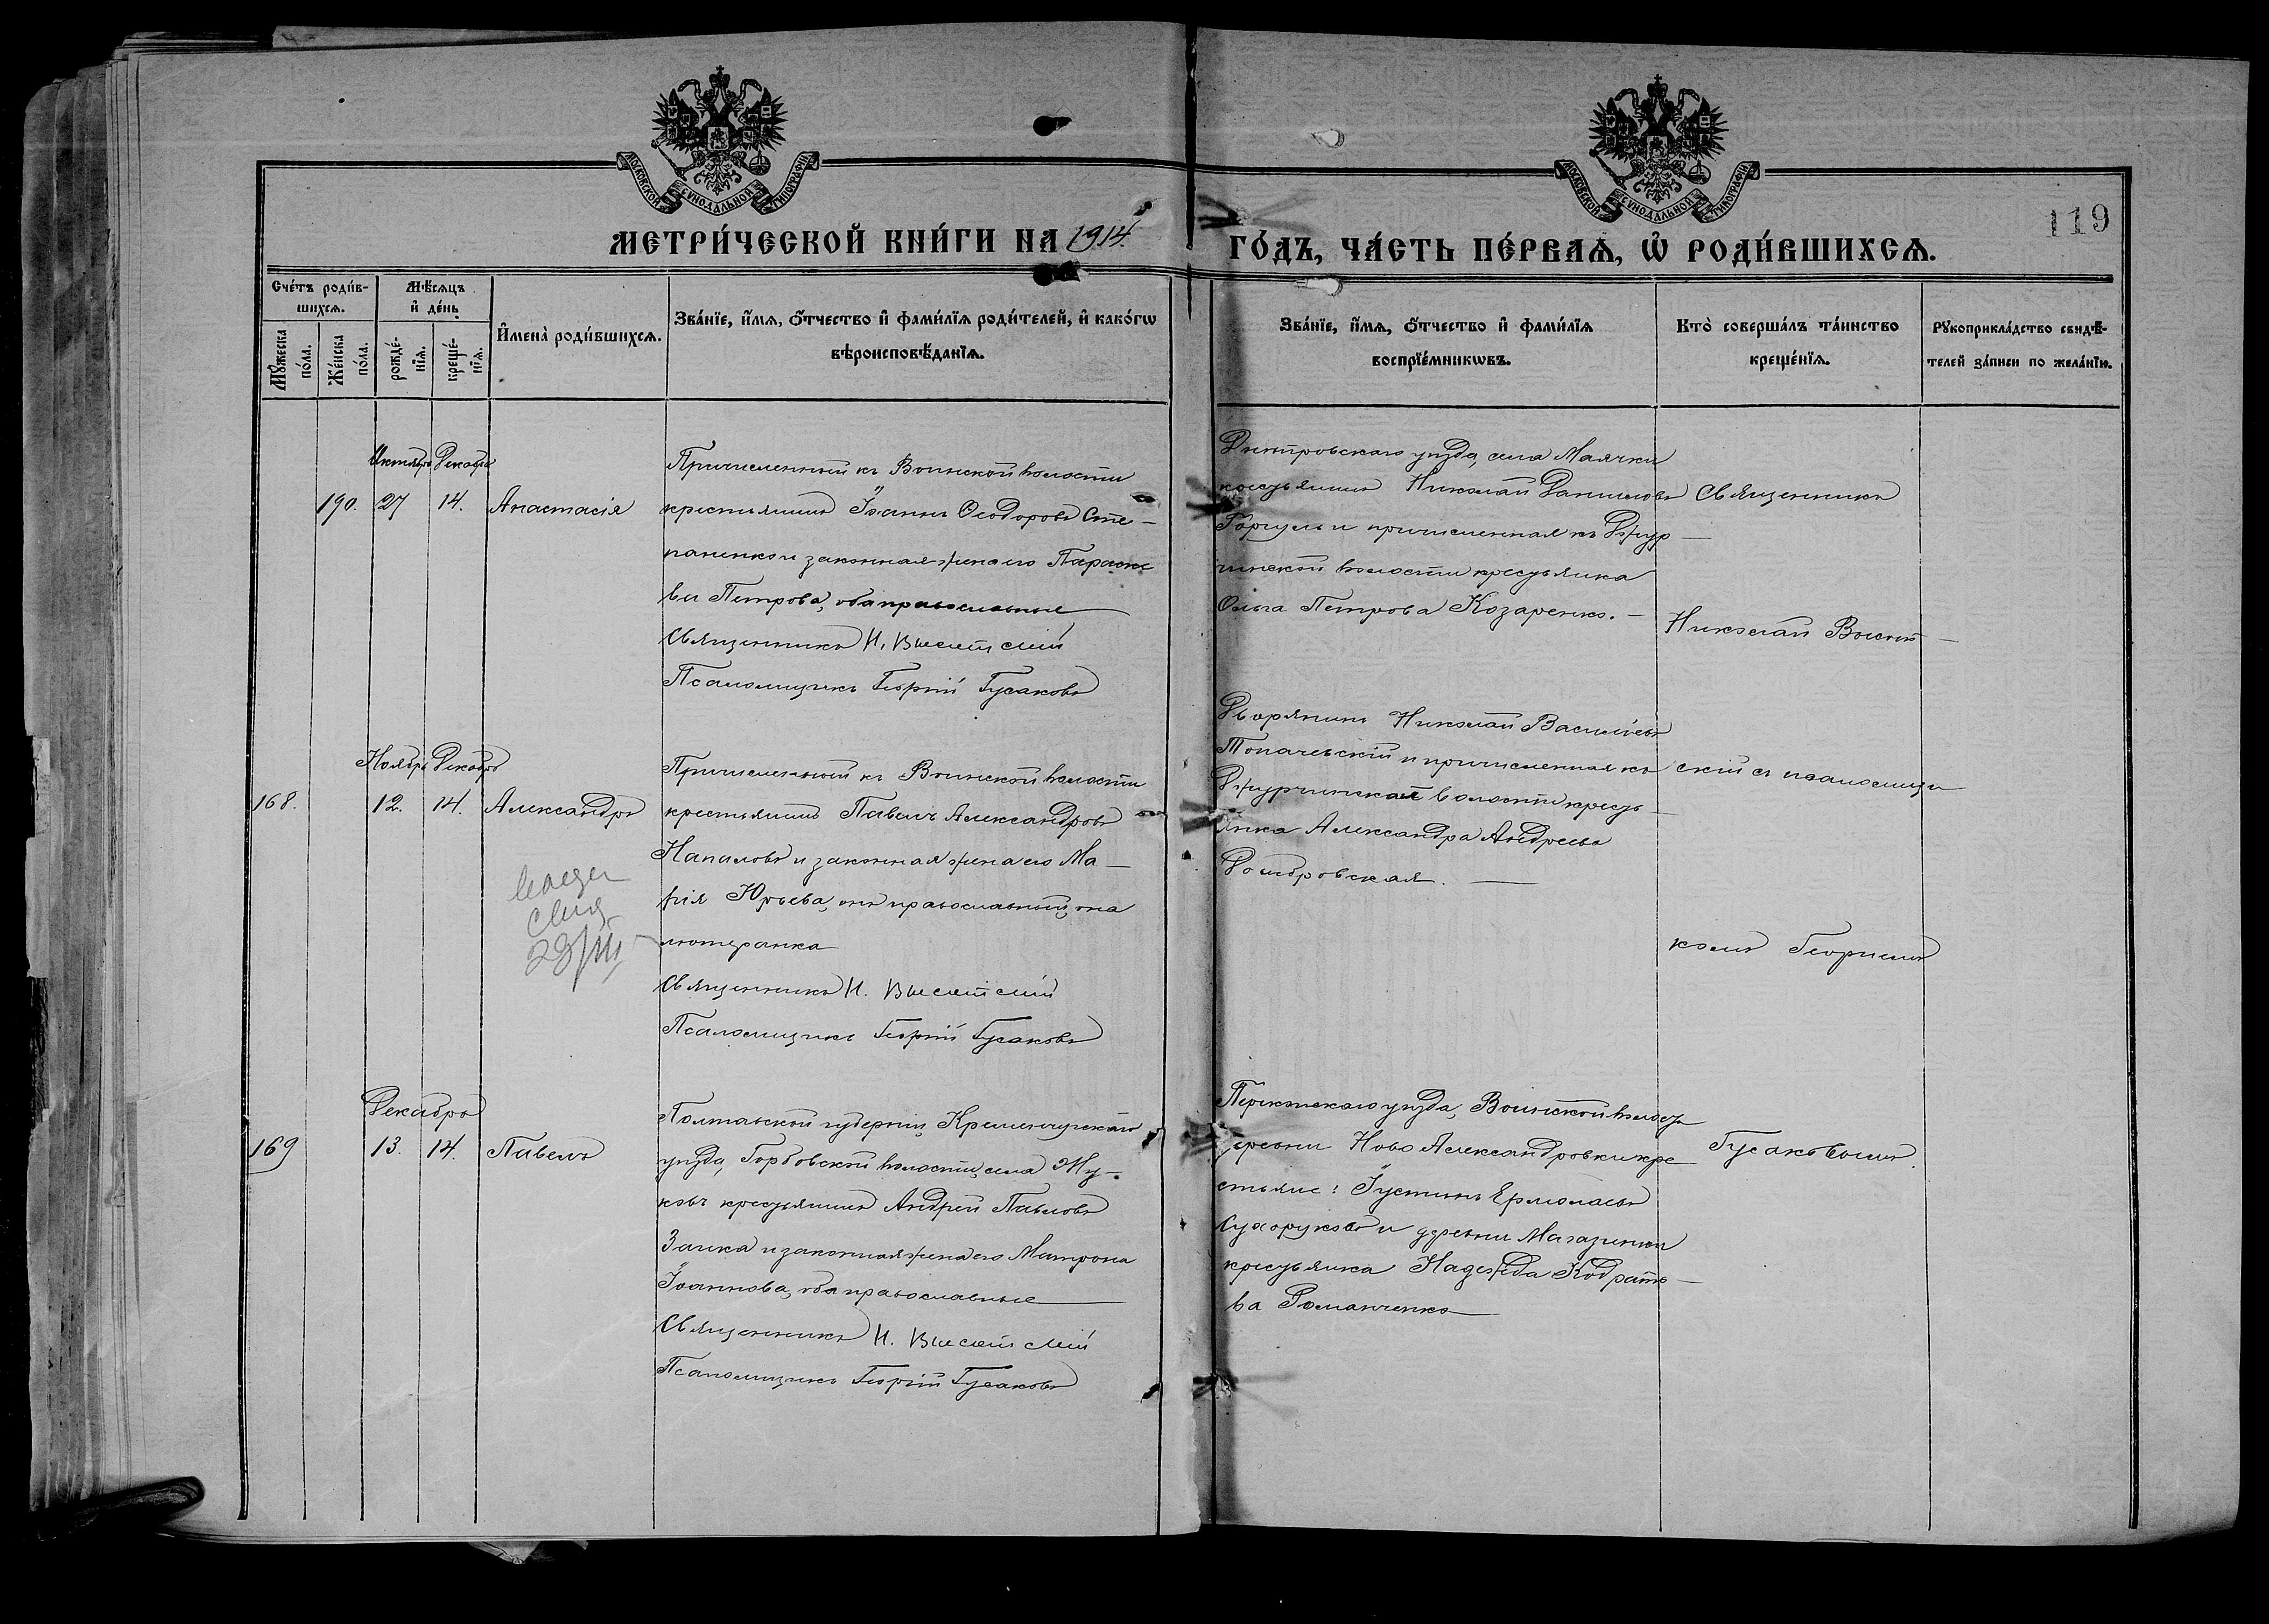 МОСКОВСКОЙ СѴНОДАЛЬНОЙ ТИПОГРАФІИ
МОСКОВСКОЙ СѴНОДАЛЬНОЙ ТИПОГРАФІИ
119
МЕТРИ́ЧЕСКОЙ КНИ́ГИ НА 1914.
ГО́ДЪ, ЧА́СТЬ ПЕ́РВАѦ, Ѡ҆ РОДИ́ВШИХСѦ.
Сче́тъ роди́в-
шихсѧ.
Мꙋ́жеска по́ла.
Же́нска по́ла.
Мѣ́сѧцъ
и҆ де́нь
рожде́-
нїѧ.
креще́-
нїѧ.
И҆мена̀ роди́вшихсѧ.
Зва́нїе, и҆́мѧ, ѻ҆́тчество и҆ фами́лїѧ роди́телей, и҆ како́гѡ
вѣроисповѣ́данїѧ.
Зва́нїе, и҆́мѧ, ѻ҆́тчество и҆ фами́лїѧ
воспрїе́мникѡвъ.
Кто̀ соверша́лъ та́инство
креще́нїѧ.
Рꙋкоприкла́дство свидѣ́-
телей за́писи по жела́нїю.
Октябрь Декабрь
190. 27 14. Анастасія
Причисленный къ Воинской волости
крестьянинъ Іоаннъ Ѳеодоровъ Сте-
паненко и законная жена его Параске
ва Петрова, оба православные
Священникъ Н. Высотскій
Псаломщикъ Георгій Гусаковъ
Днѣпровскаго уѣзда, села Маячки
крестьянинъ Николай Даниловъ
Горгуль и причисленная къ Джур-
чинской волости крестьянка
Ольга Петрова Козаренко.
Священникъ
Николай Высот-
Ноябрь Декабрь
168. 12. 14. Александръ
23/III
Причисленный къ Воинской волости
крестьянинъ Павелъ Александровъ
Напаловъ и законная жена его Ма-
рія Юрьева, онъ православный, она
лютеранка
Священникъ Н. Высотскій
Псаломщикъ Георгій Гусаковъ
Дворянинъ Николай Васильевъ
Топачевскій и причисленная къ
Джурчинской волости кресть-
янка Александра Андреева
Домбровская.
скій съ псаломщи
комъ Георгіемъ
Декабрь
169 13. 14. Павелъ
Полтавской губерніи, Кременчугскаго
уѣзда, Горбовской волости, села Жу-
ковъ крестьянинъ Андрей Павловъ
Заика и законная жена его Матрона
Іоаннова, оба православные
Священникъ Н. Высотскій
Псаломщикъ Георгій Гусаковъ
Перекопскаго уѣзда, Воинской волости
деревни Ново Александровки кре
стьяне: Іустинъ Ермолаевъ
Сухоруковъ и деревни Магазинки
крестьянка Надежда Кодрать-
ва Романченко
Гусаковымъ.